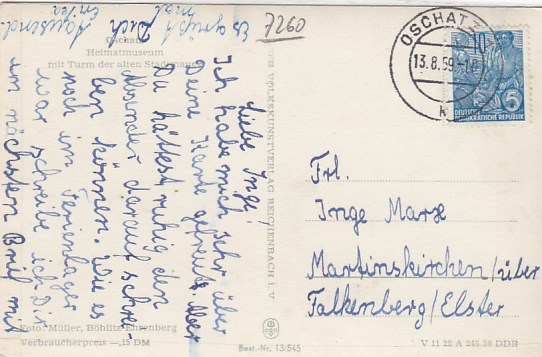 7260
Es grüßt Dich
tausend
mal
Liebe Inge!
Ich habe mich sehr über
Deine Karte gefreut. Aber
Du hättest ruhig den
Absender darauf schrei-
ben können. Wie es
noch im Ferienlager
war schreibe ich Dir
im nächsten Brief mit
Oschatz
Heimatmuseum
mit Turm der alten Stadtmauer
VEB VOLKSKUNSTVERLAG REICHENBACH I. V
OSCHATZ
13.8.59
k
10
5
DEUTSCHE
DEMOKRATISCHE REPUBLIK
Frl.
Inge Marx
Martinskirchen/über
Falkenberg/Elster
Foto: Müller, Böhlitz-Ehrenberg
Verbraucherpreis —,15 DM
Best.-Nr. 13/545